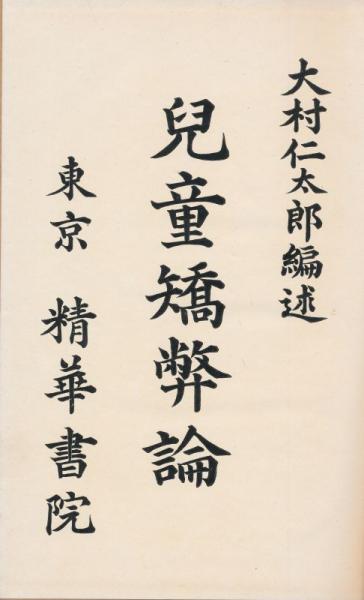 大村仁太郎編述
兒童矯弊論
東京 精華書院